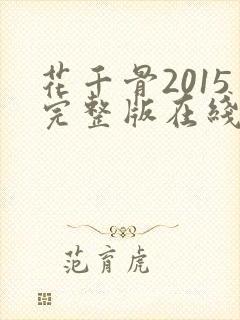 花千骨2015
完整版在綫
范育虎